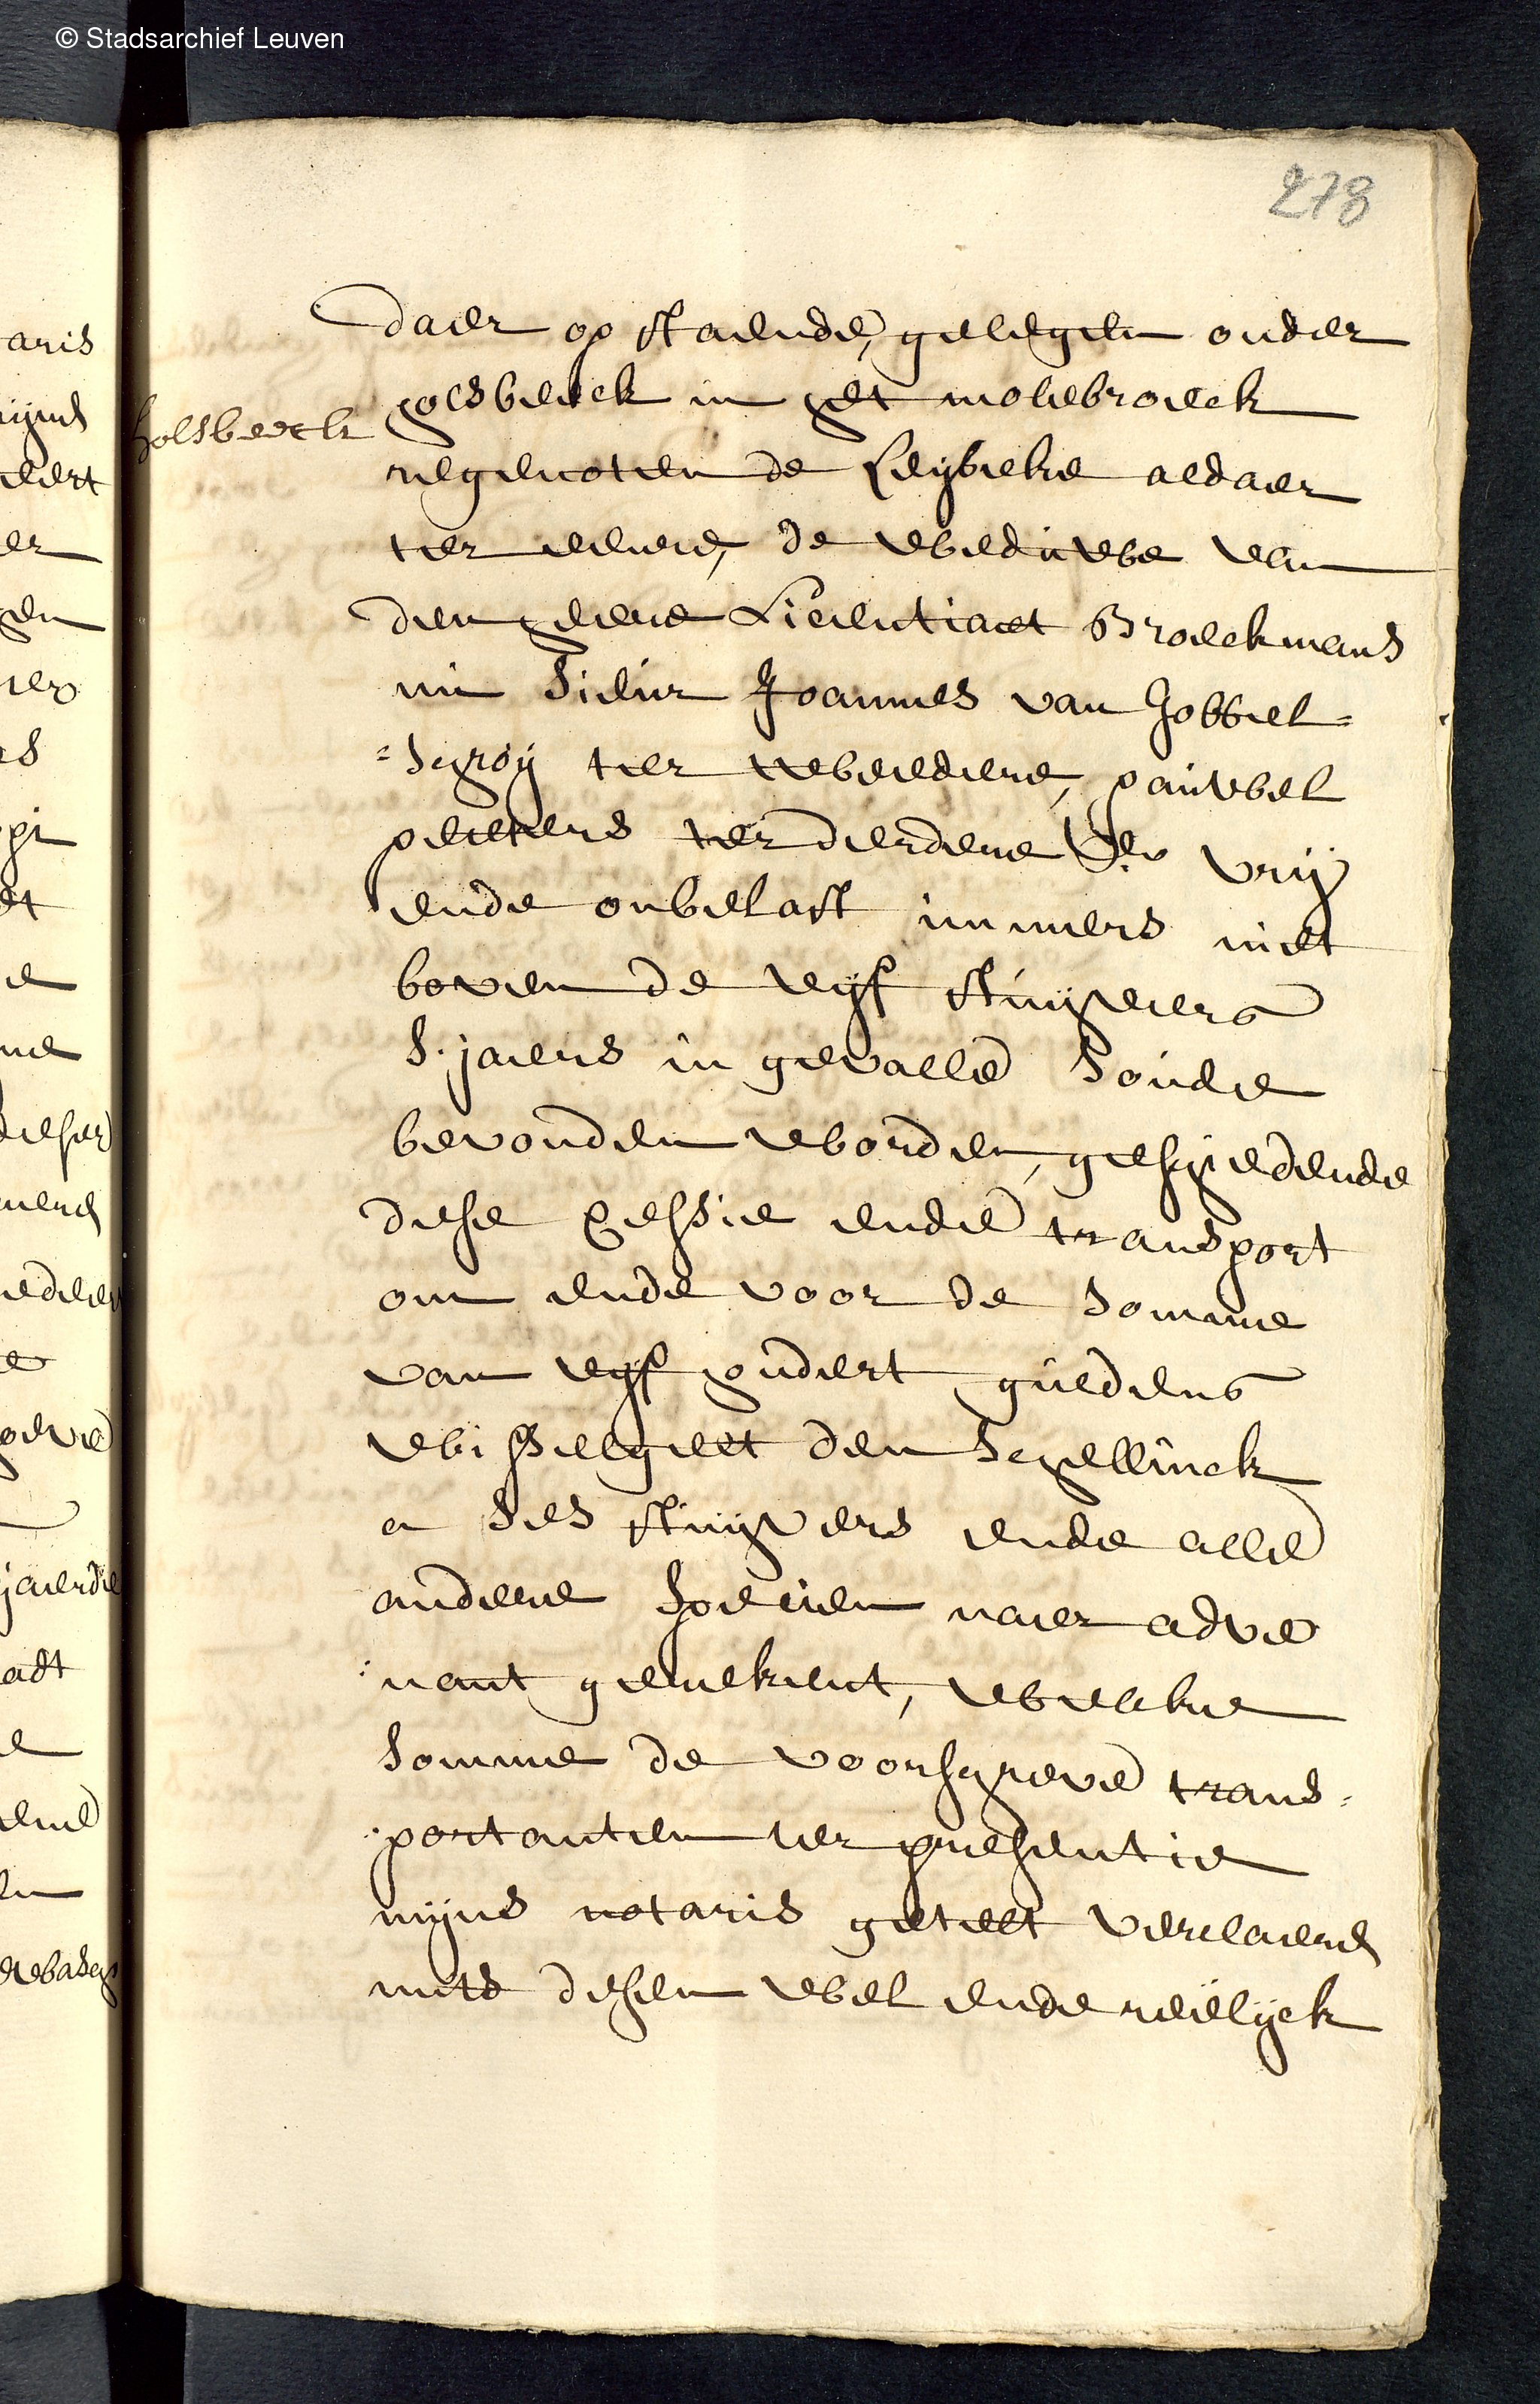 © Stadsarchief Leuven
278
daer op staende, gelegen onder
holsbeeck in het molebroeck
Holsbeeck
regenoten de Leybeke aldaer
ter eenre, de weduwe van
den heere Licentiaet Broeckmans
nu Sieur Joannes van Hobbel=
=schroy ter tweedere, pauwel
peeters ter derdere Ser vrij
ende onbelast immers niet
boven de vyf stuyvers
s.jaers in gevalle soude
bevonden worden, geschiedende
dese Cessie ende transport
om ende voor de somme
van vyf hudert guldens
wisselgelt den schellinck
a ses stuyvers ende alle
andere specien naer adve
:nant gerekent, welcke
somme de voorschreve trans=
:portanten ter presentie
mijns notaris getelt verclaeren
mits desen wel ende reelyck
aris
eert
er
et
me
jaerde
adt